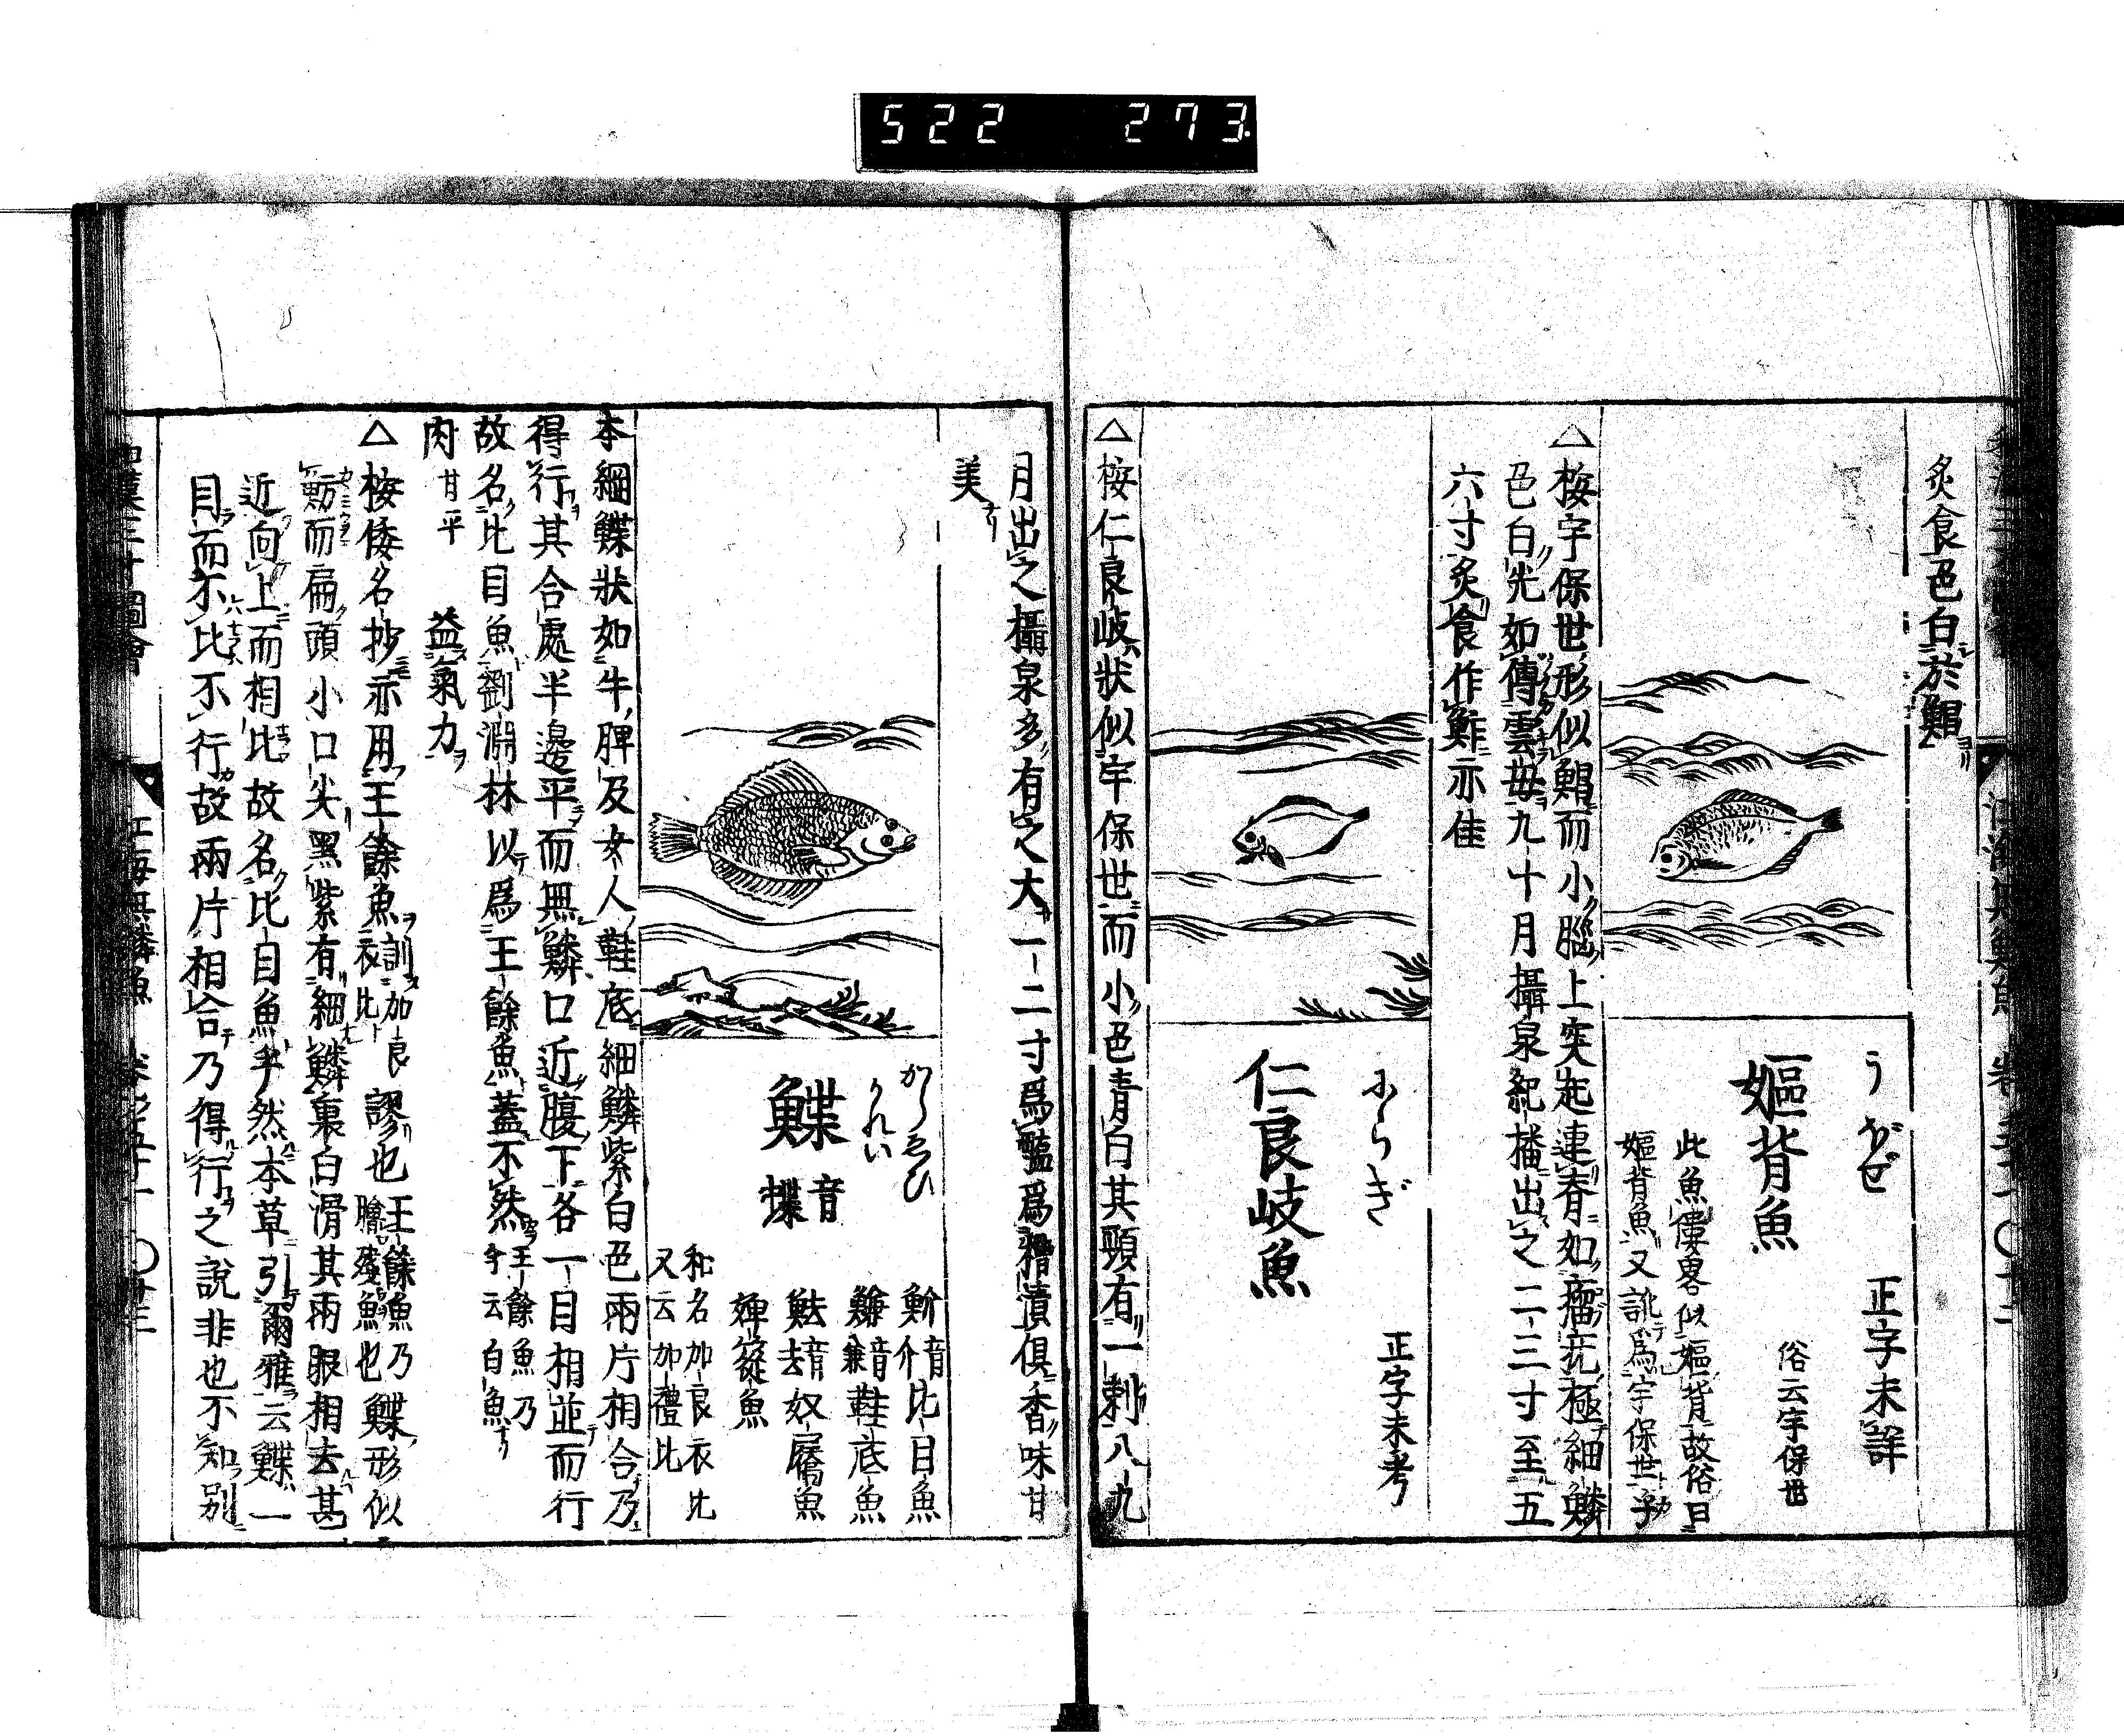 522 273
炙食色白於鯧
うぼぜ
正字未詳
嫗背魚
俗云宇保世
此魚僂畧似嫗背故俗曰
嫗背魚又訛爲宇保世乎
△桉宇保世形似鯧而小腦上突起連脊如瘤疣極細鱗
色白光如傅雲母九十月攝泉紀播出之二三寸至五
六寸炙食作鮓亦佳
にらぎ
正字未考
仁良岐魚
△桉仁良岐狀似宇保世而小色青白其頸有一刺八九
月出之攝泉多有之大一二寸爲醢爲糟漬俱香味甘
美
からゑひ
かれい
鰈 音蝶
魪音介比目魚
鰜音兼鞋底魚
魼音去奴屩魚
婢簁魚
和名加良衣比
又云加禮比
本綱鰈狀如牛脾及女人鞋底細鱗紫白色兩片相合乃
得行其合處半邊平而無鱗口近腹下各一目相並而行
故名比目魚劉淵林以爲王餘魚蓋不然王餘魚乃今云白魚
肉甘平 益氣力
△桉倭名抄亦用王餘魚訓加良衣比謬也王餘魚乃膾殘魚也鰈形似
魴而扁頭小口尖黑紫有細鱗裏白滑其兩眼相去甚
近向上而相比故名比目魚乎然本草引爾雅云鰈一
目而不比不行故兩片相合乃得行之說非也不知別
和漢三才圖會 江海無鱗魚 卷之五十一 〇廿三